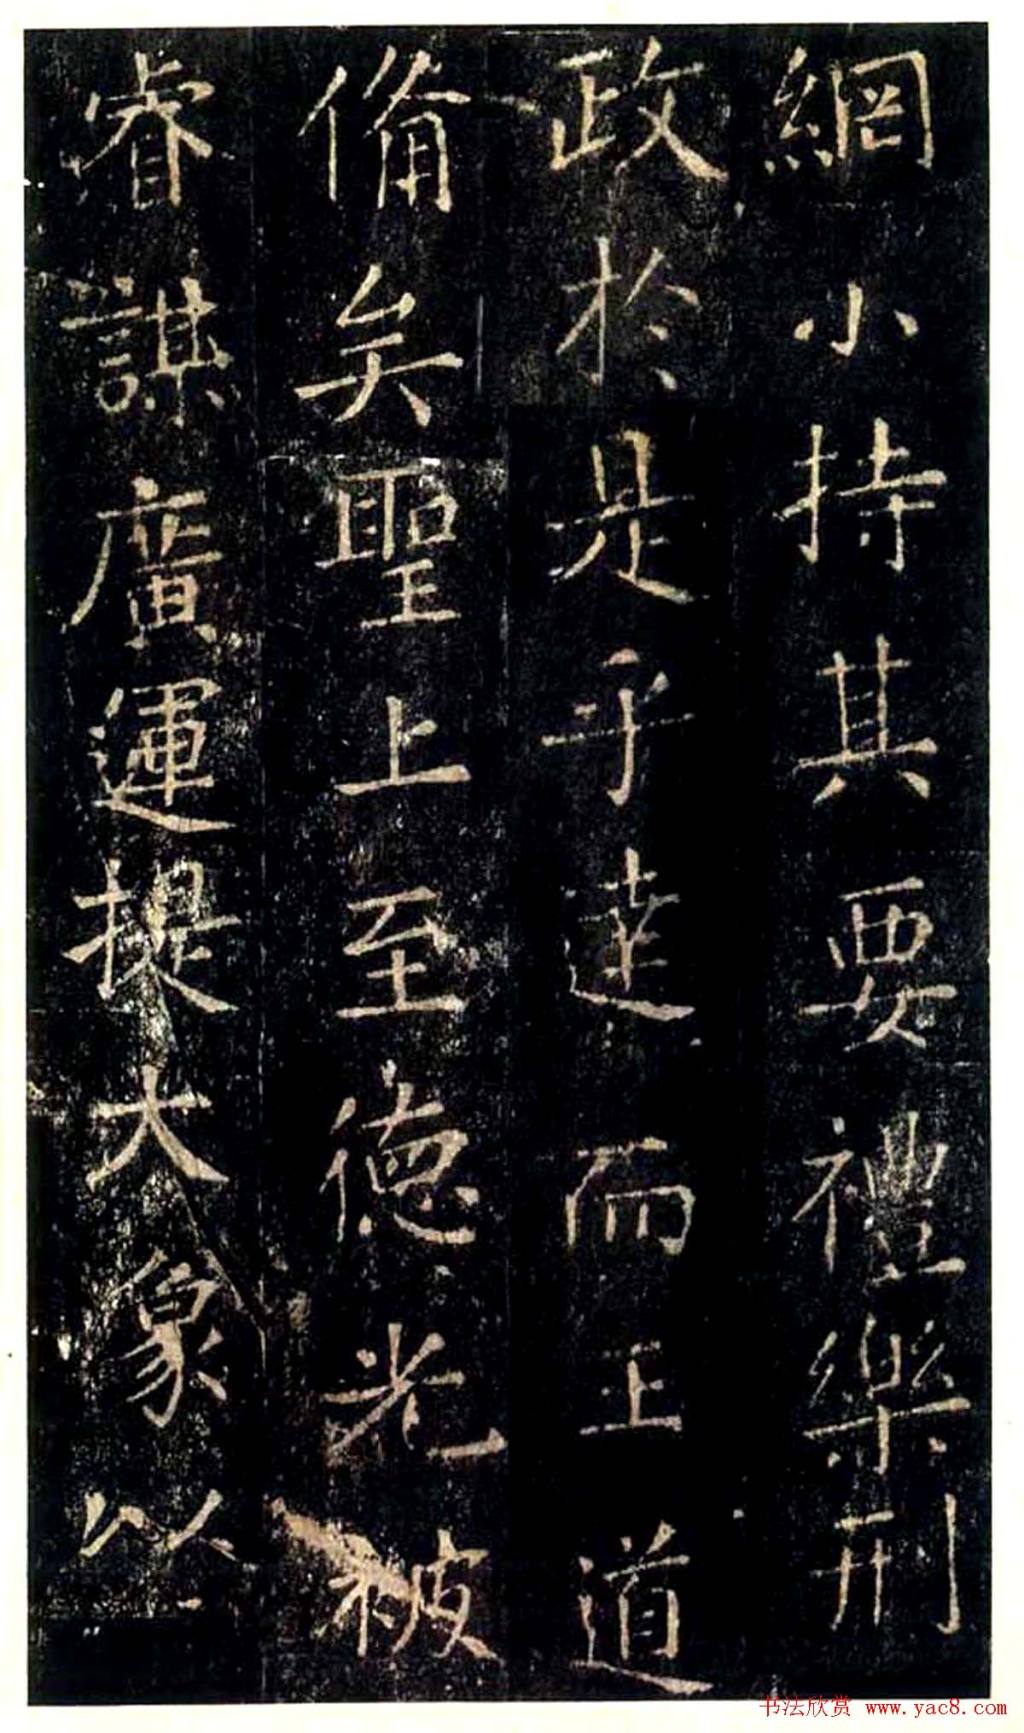 網小持其要禮樂刑
政於是乎達而王道
備矣聖上至德光被
睿謀廣運提大象以
书法欣赏 www.yac8.com